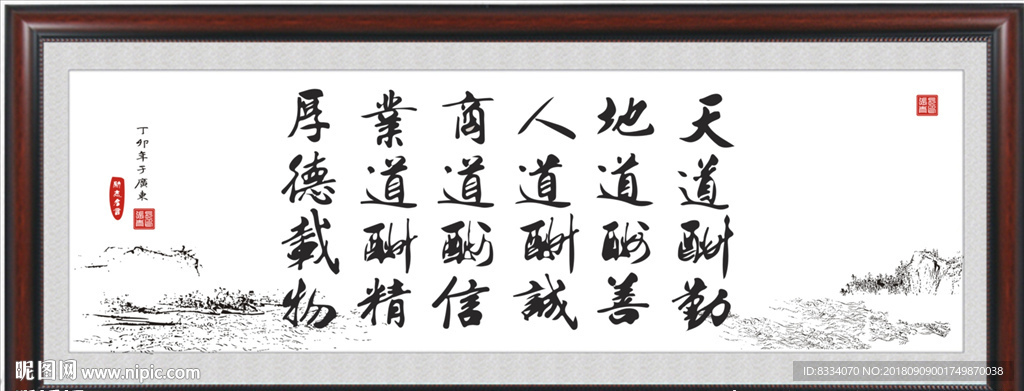 天道酬勤
地道酬善
人道酬誠
商道酬信
業道酬精
厚德載物
丁卯年于廣東
昵图网
www.nipic.com
ID:8334070 NO:20180909001749870038